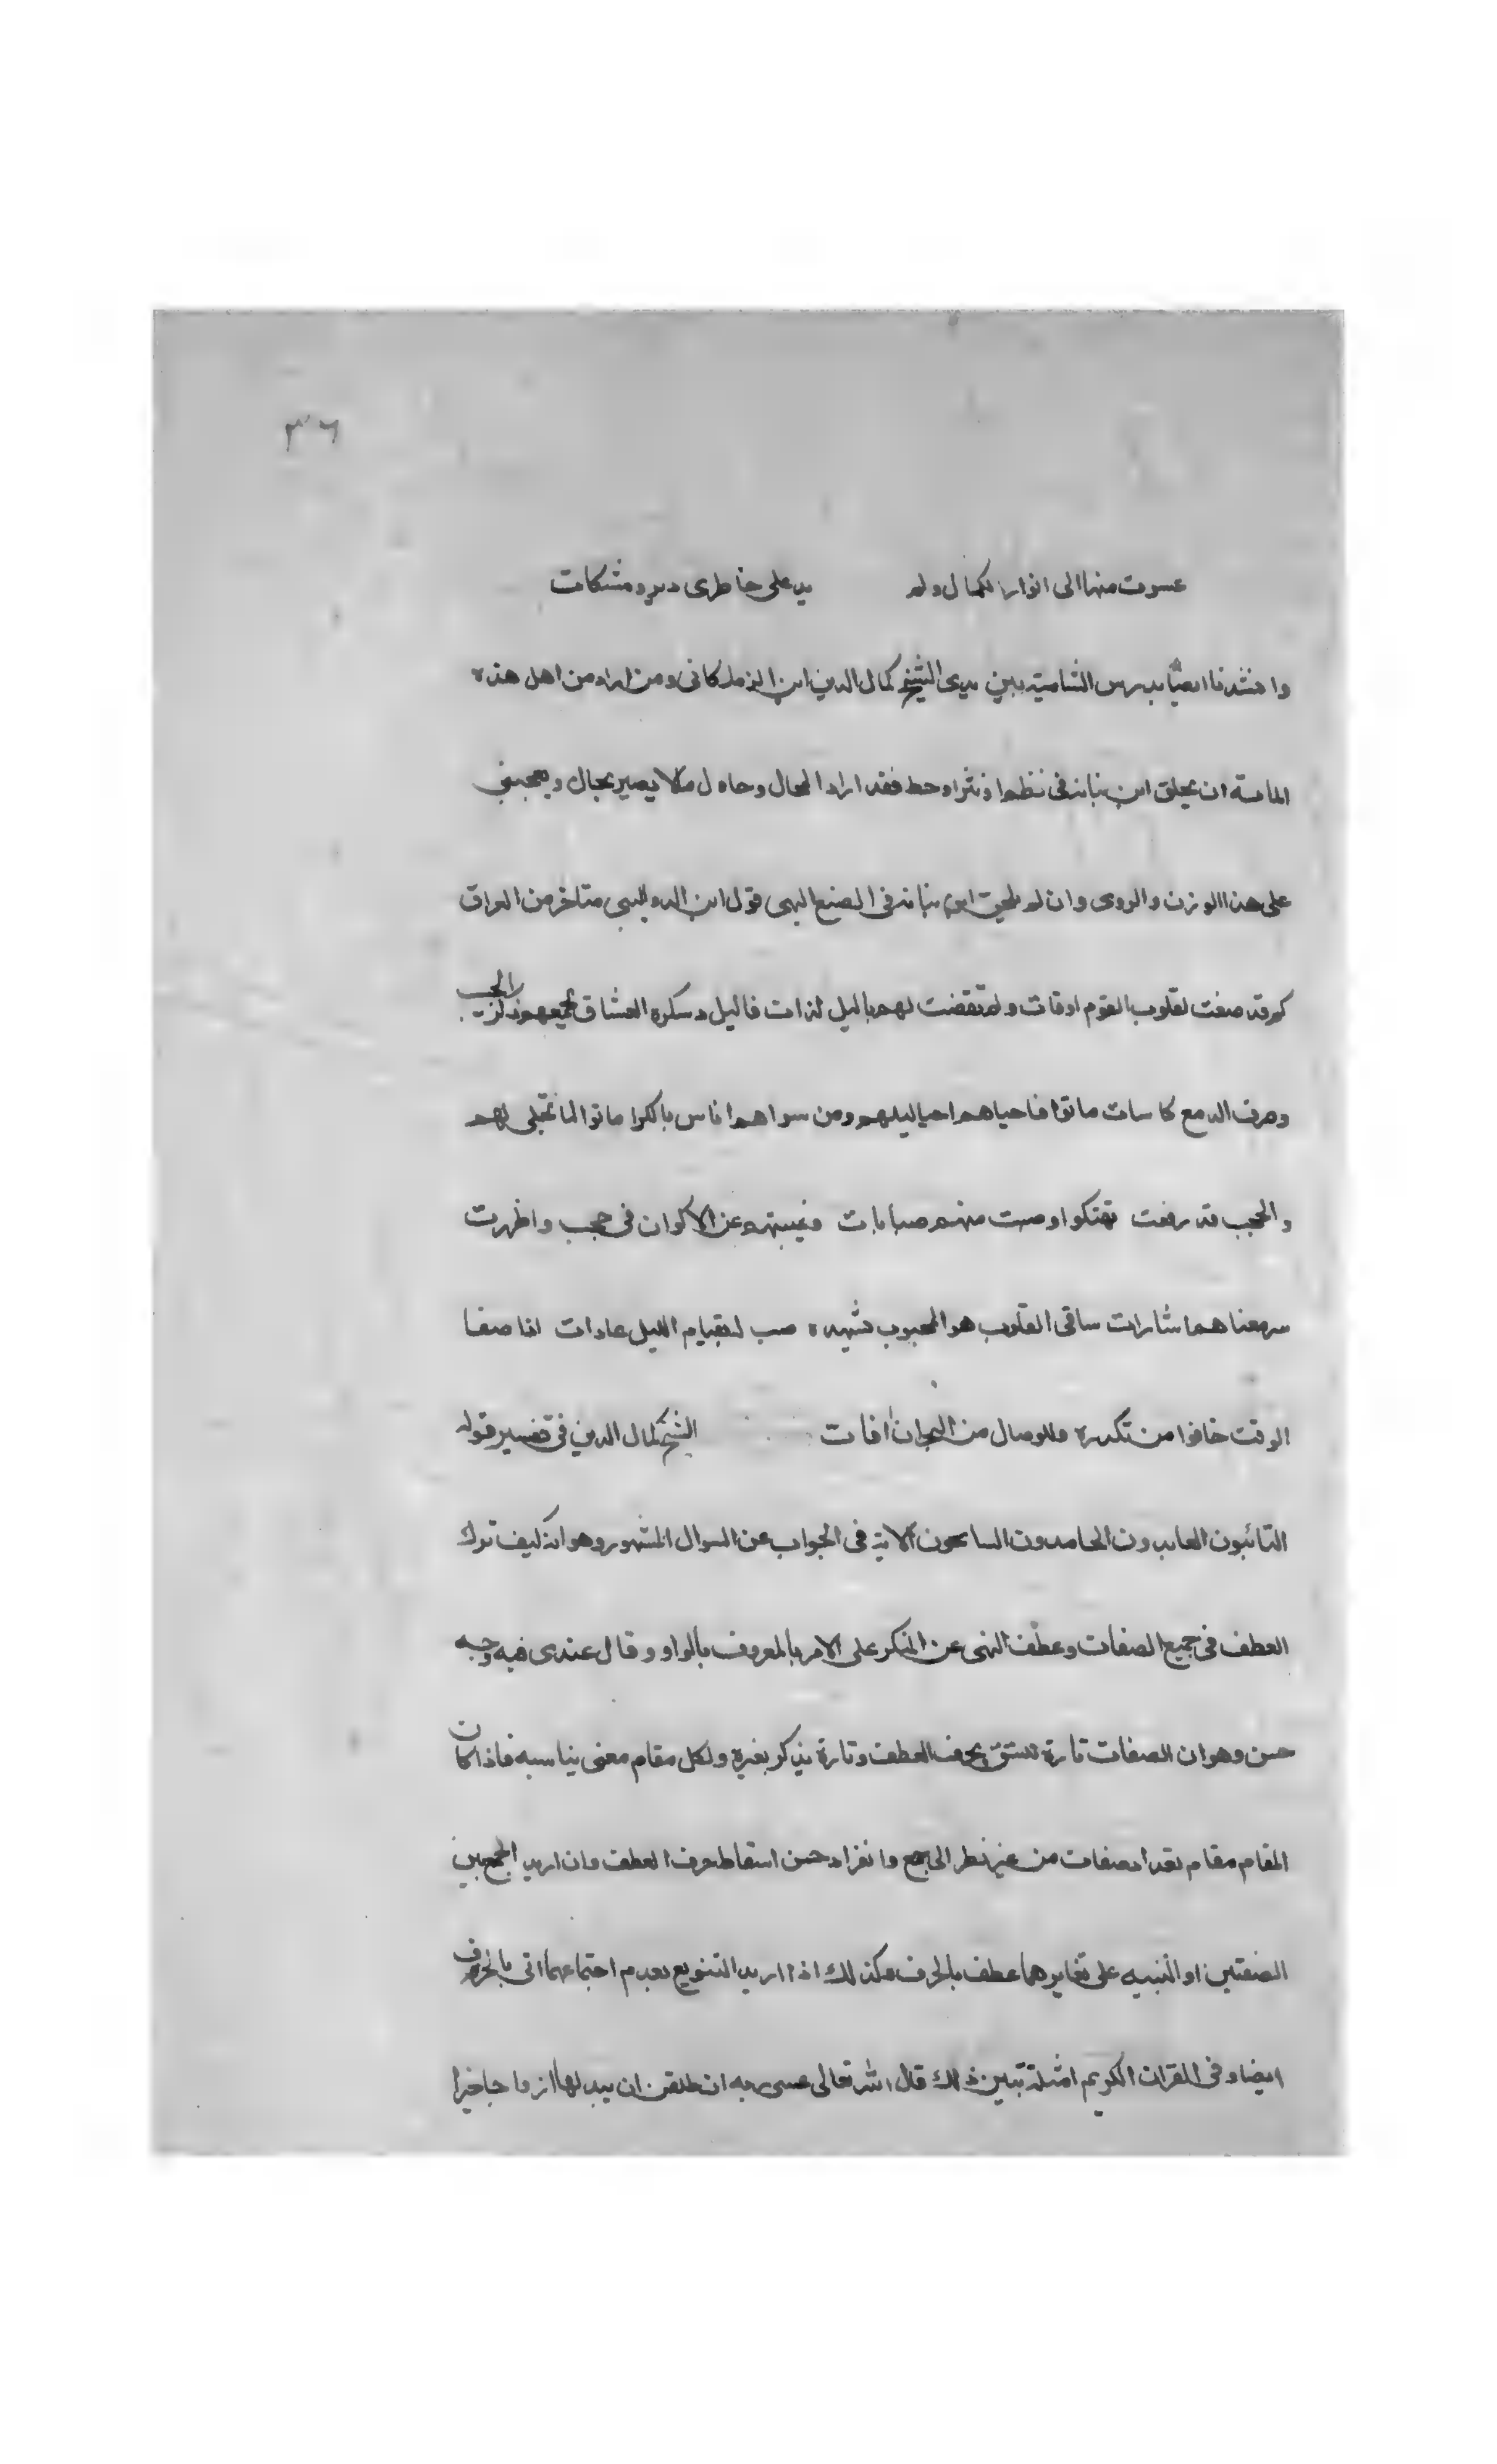 ٣٦
منها الى انوار الكمال ولم على خاطرى ومشكات
وانشدنا ايضا بدرس الشامية بين يدى الشيخ كمال الدين ابن الزملكانى ومن اراد من اهل هذه
الماسة ان ابن نباته فى نظم او نثر او خط فقد اراد المحال وحاول ما لا يصير بحال ويعجبنى
على هذا الوزن والروى وان لم يلحق ابن نباته فى الصنع البهى قول ابن متاخر من العراق
كم قد صفت لقلوب القوم اوقات ولم تقضت لهم بالليل لذات فاليل دسكرة العشاق يجمعهم الحب
وصرف الدمع كاسات ماتوا فاحياهم احيا ليلهم ومن سواهم اناس بالكرا ماتوا لما تجلى لهم
والحجب قد رفعت تهتكوا وصبت منهم صبابات وغيبتهم عن الاكوان فى حجب واظهرت
سر معناهم اشارات ساقى القلوب هو المحبوب تشهده صب له بقيام الليل عادات اذا صفا
الوقت خافوا من تكدره وللوصال من الهجران افات الشيخ كمال الدين فى تفسير قوله
التائبون العابدون الحامدون السائحون الآية فى الجواب عن السوال المشهور وهو انه كيف ترك
العطف فى جميع الصفات وعطف النهى عن المنكر على الامر بالمعروف بالواو وقال عندى فيه وجه
حسن وهو ان الصفات تارة بحرف العطف وتارة يذكر بغيره ولكل مقام معنى يناسبه فاذا كان
المقام مقام تعداد صفات من غير نظر الى جمع وانفراد حسن اسقاط حرف العطف وان اريد الجمع بين
الصفتين او التنبيه على تغايرهما عطف بالحرف وكذلك اذا اريد التنويع بعدم اجتماعهما اتى بالحرف
ايضا وفى القران الكريم امثلة تبين ذلك قال الله تعالى عسى ربه ان طلقن ان يبدلها ازواجا خيرا